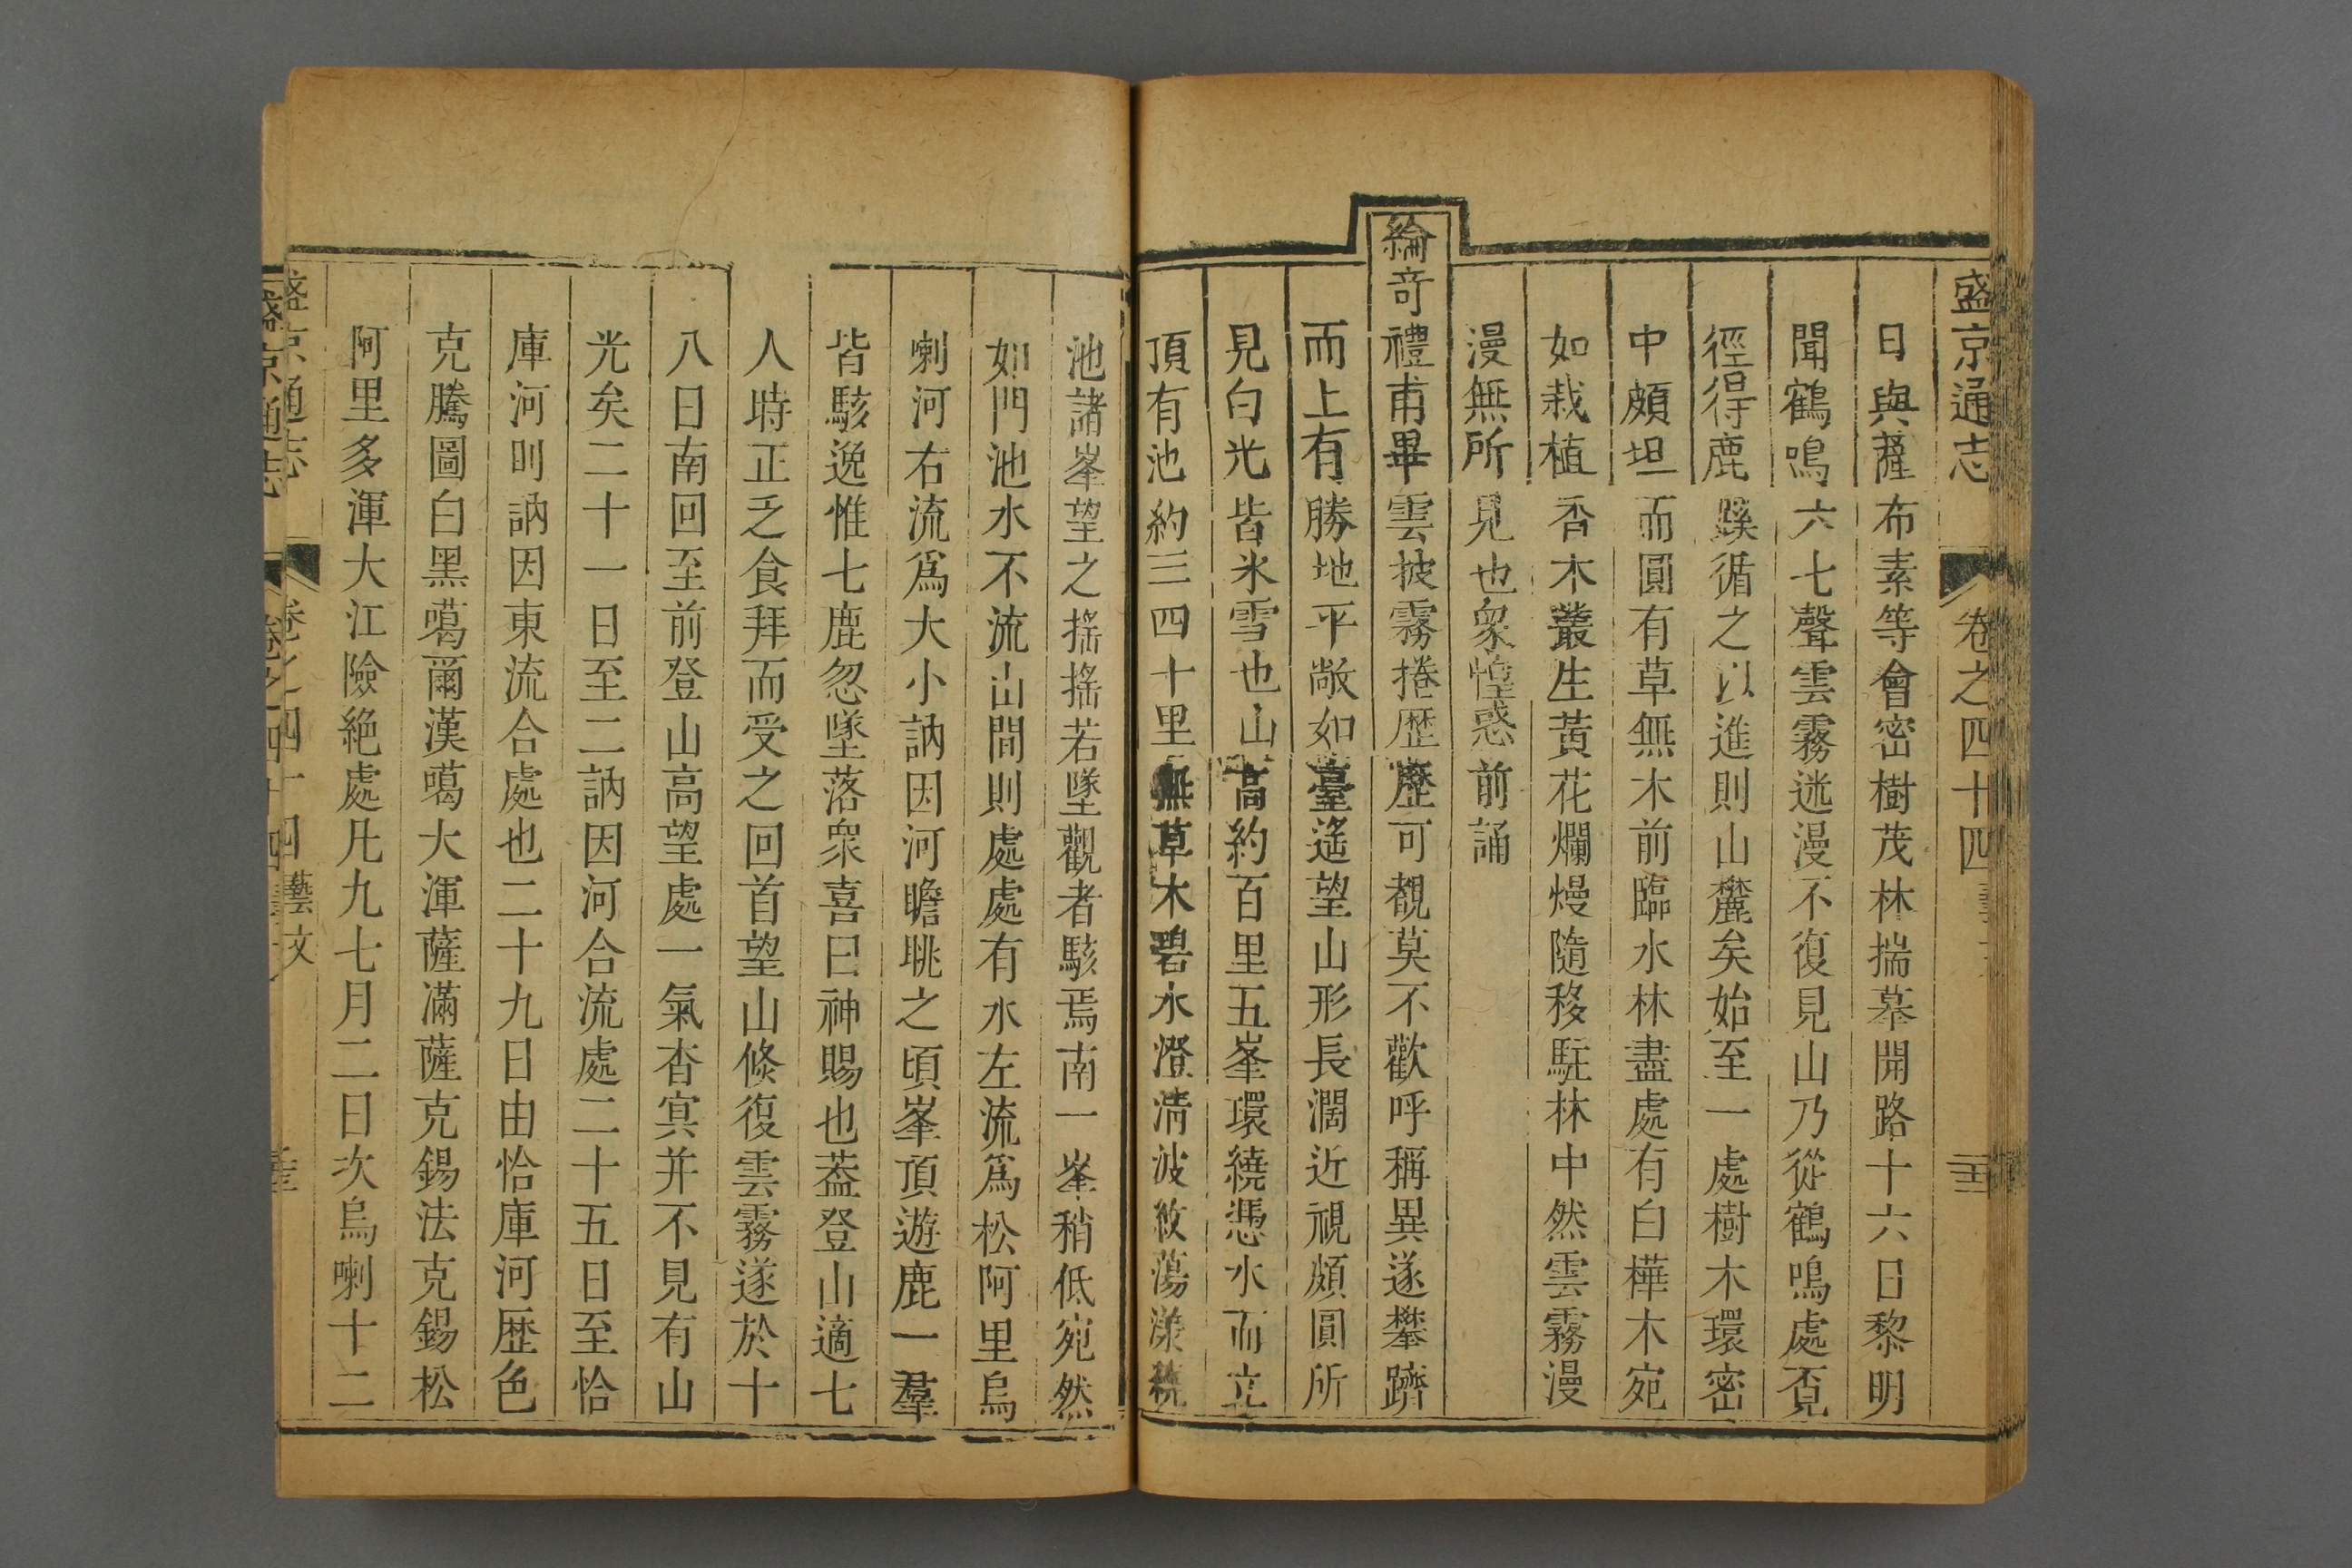 盛京通志 卷之四十四
日與薩布素等會密樹茂林揣摹開路十六日黎明
聞鶴鳴六七聲雲霧迷漫不復見山乃從鶴鳴處覓
徑得鹿蹊循之以進則山麓矣始至一處樹木環密
中頗坦而圓有草無木前臨水林盡處有白樺木宛
如栽植香木叢生黃花爛熳隨移駐林中然雲霧漫
漫無所見也衆惶惑前誦
綸音禮甫畢雲披霧捲歷歷可覩莫不歡呼稱異遂攀躋
而上有勝地平敞如臺遙望山形長濶近視頗圓所
見白光皆氷雪也山高約百里五峯環繞憑水而立
頂有池約三四十里無草木碧水澄清波紋蕩漾繞
池諸峯望之搖搖若墜觀者駭焉南一峯稍低宛然
如門池水不流山間則處處有水左流爲松阿里烏
喇河右流爲大小訥因河瞻眺之頃峯頂遊鹿一羣
皆駭逸惟七鹿忽墜落衆喜曰神賜也葢登山適七
人時正乏食拜而受之回首望山倐復雲霧遂於十
八日南回至前登山高望處一氣杳冥并不見有山
光矣二十一日至二訥因河合流處二十五日至恰
庫河則訥因東流合處也二十九日由恰庫河歷色
克騰圖白黑噶爾漢噶大渾薩滿薩克錫法克錫松
阿里多渾大江險絶處凡九七月二日次烏喇十二
盛京通志 卷之四十四藝文
盛京通志 卷之四十四